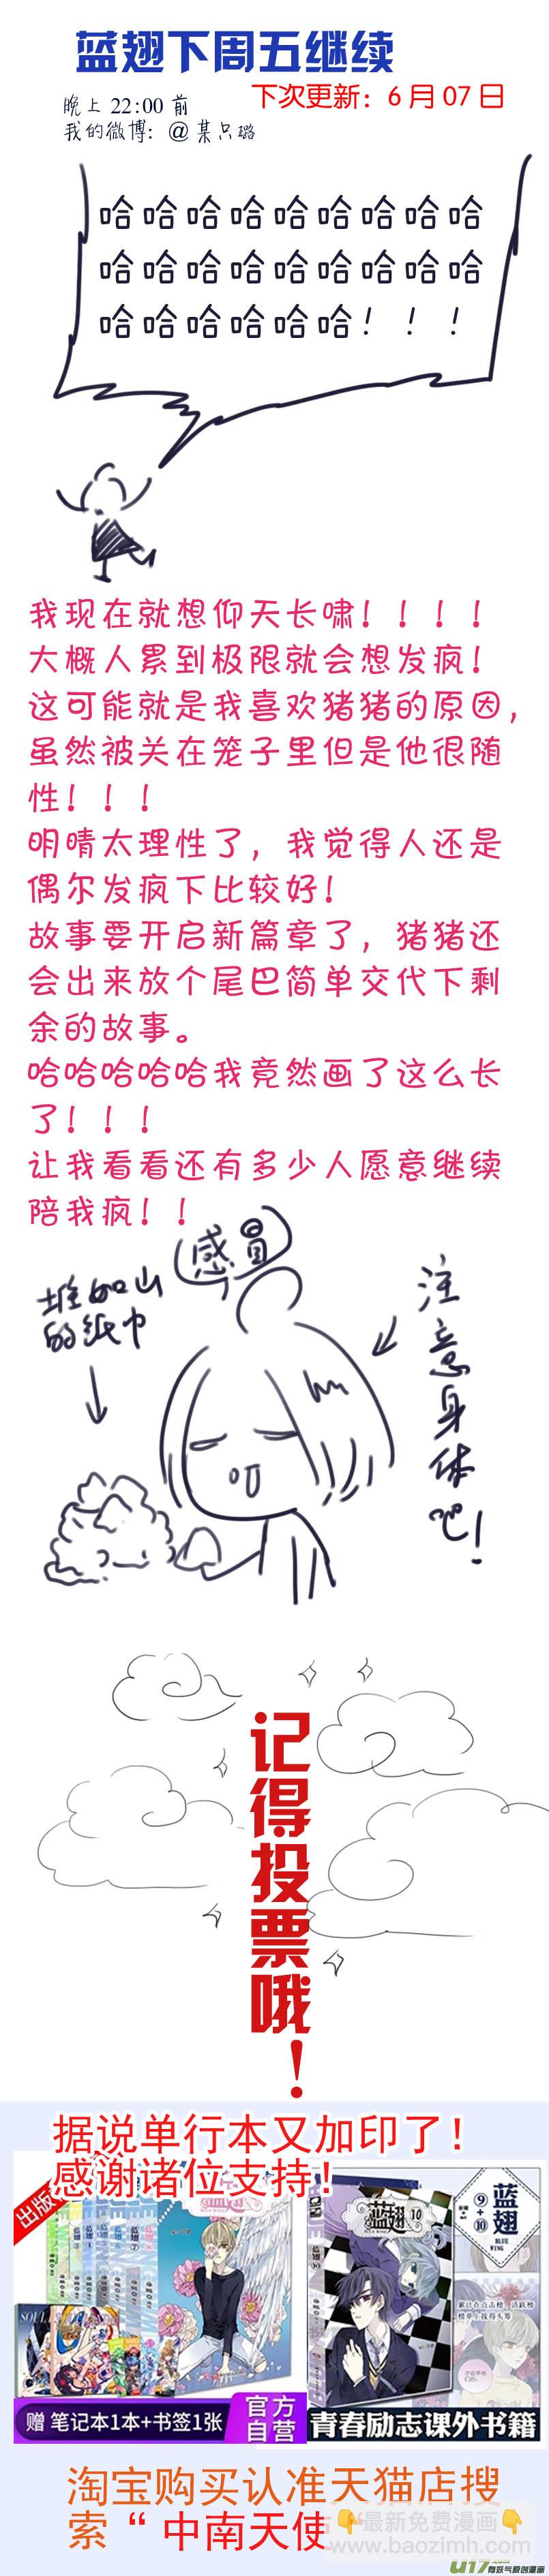 蓝翅下周五继续
下次更新：6月07日
晚上 22:00 前
我的微博：@某只璐
哈哈哈哈哈哈哈哈哈
哈哈哈哈哈哈哈哈哈
哈哈哈哈哈哈！！！
我现在就想仰天长啸！！！！
大概人累到极限就会想发疯！
这可能就是我喜欢猪猪的原因，
虽然被关在笼子里但是他很随
性！！！
明晴太理性了，我觉得人还是
偶尔发疯下比较好！
故事要开启新篇章了，猪猪还
会出来放个尾巴简单交代下剩
余的故事。
哈哈哈哈哈我竟然画了这么长
了！！！
让我看看还有多少人愿意继续
陪我疯！！
感冒
堆如山
的纸巾
注意身体吧！
记得投票哦！
据说单行本又加印了！
感谢诸位支持！
出版
蓝翅
10
蓝翅
⑨+⑩
BLUE
WING
累计在点击榜、活跃榜
榜单上拔得头筹
赠 笔记本1本+书签1张
官方
自营
青春励志课外书籍
淘宝购买认准天猫店搜
索“中南天使
👇最新免费漫画👇
www.baozimh.com
U17.com
有妖气原创漫画